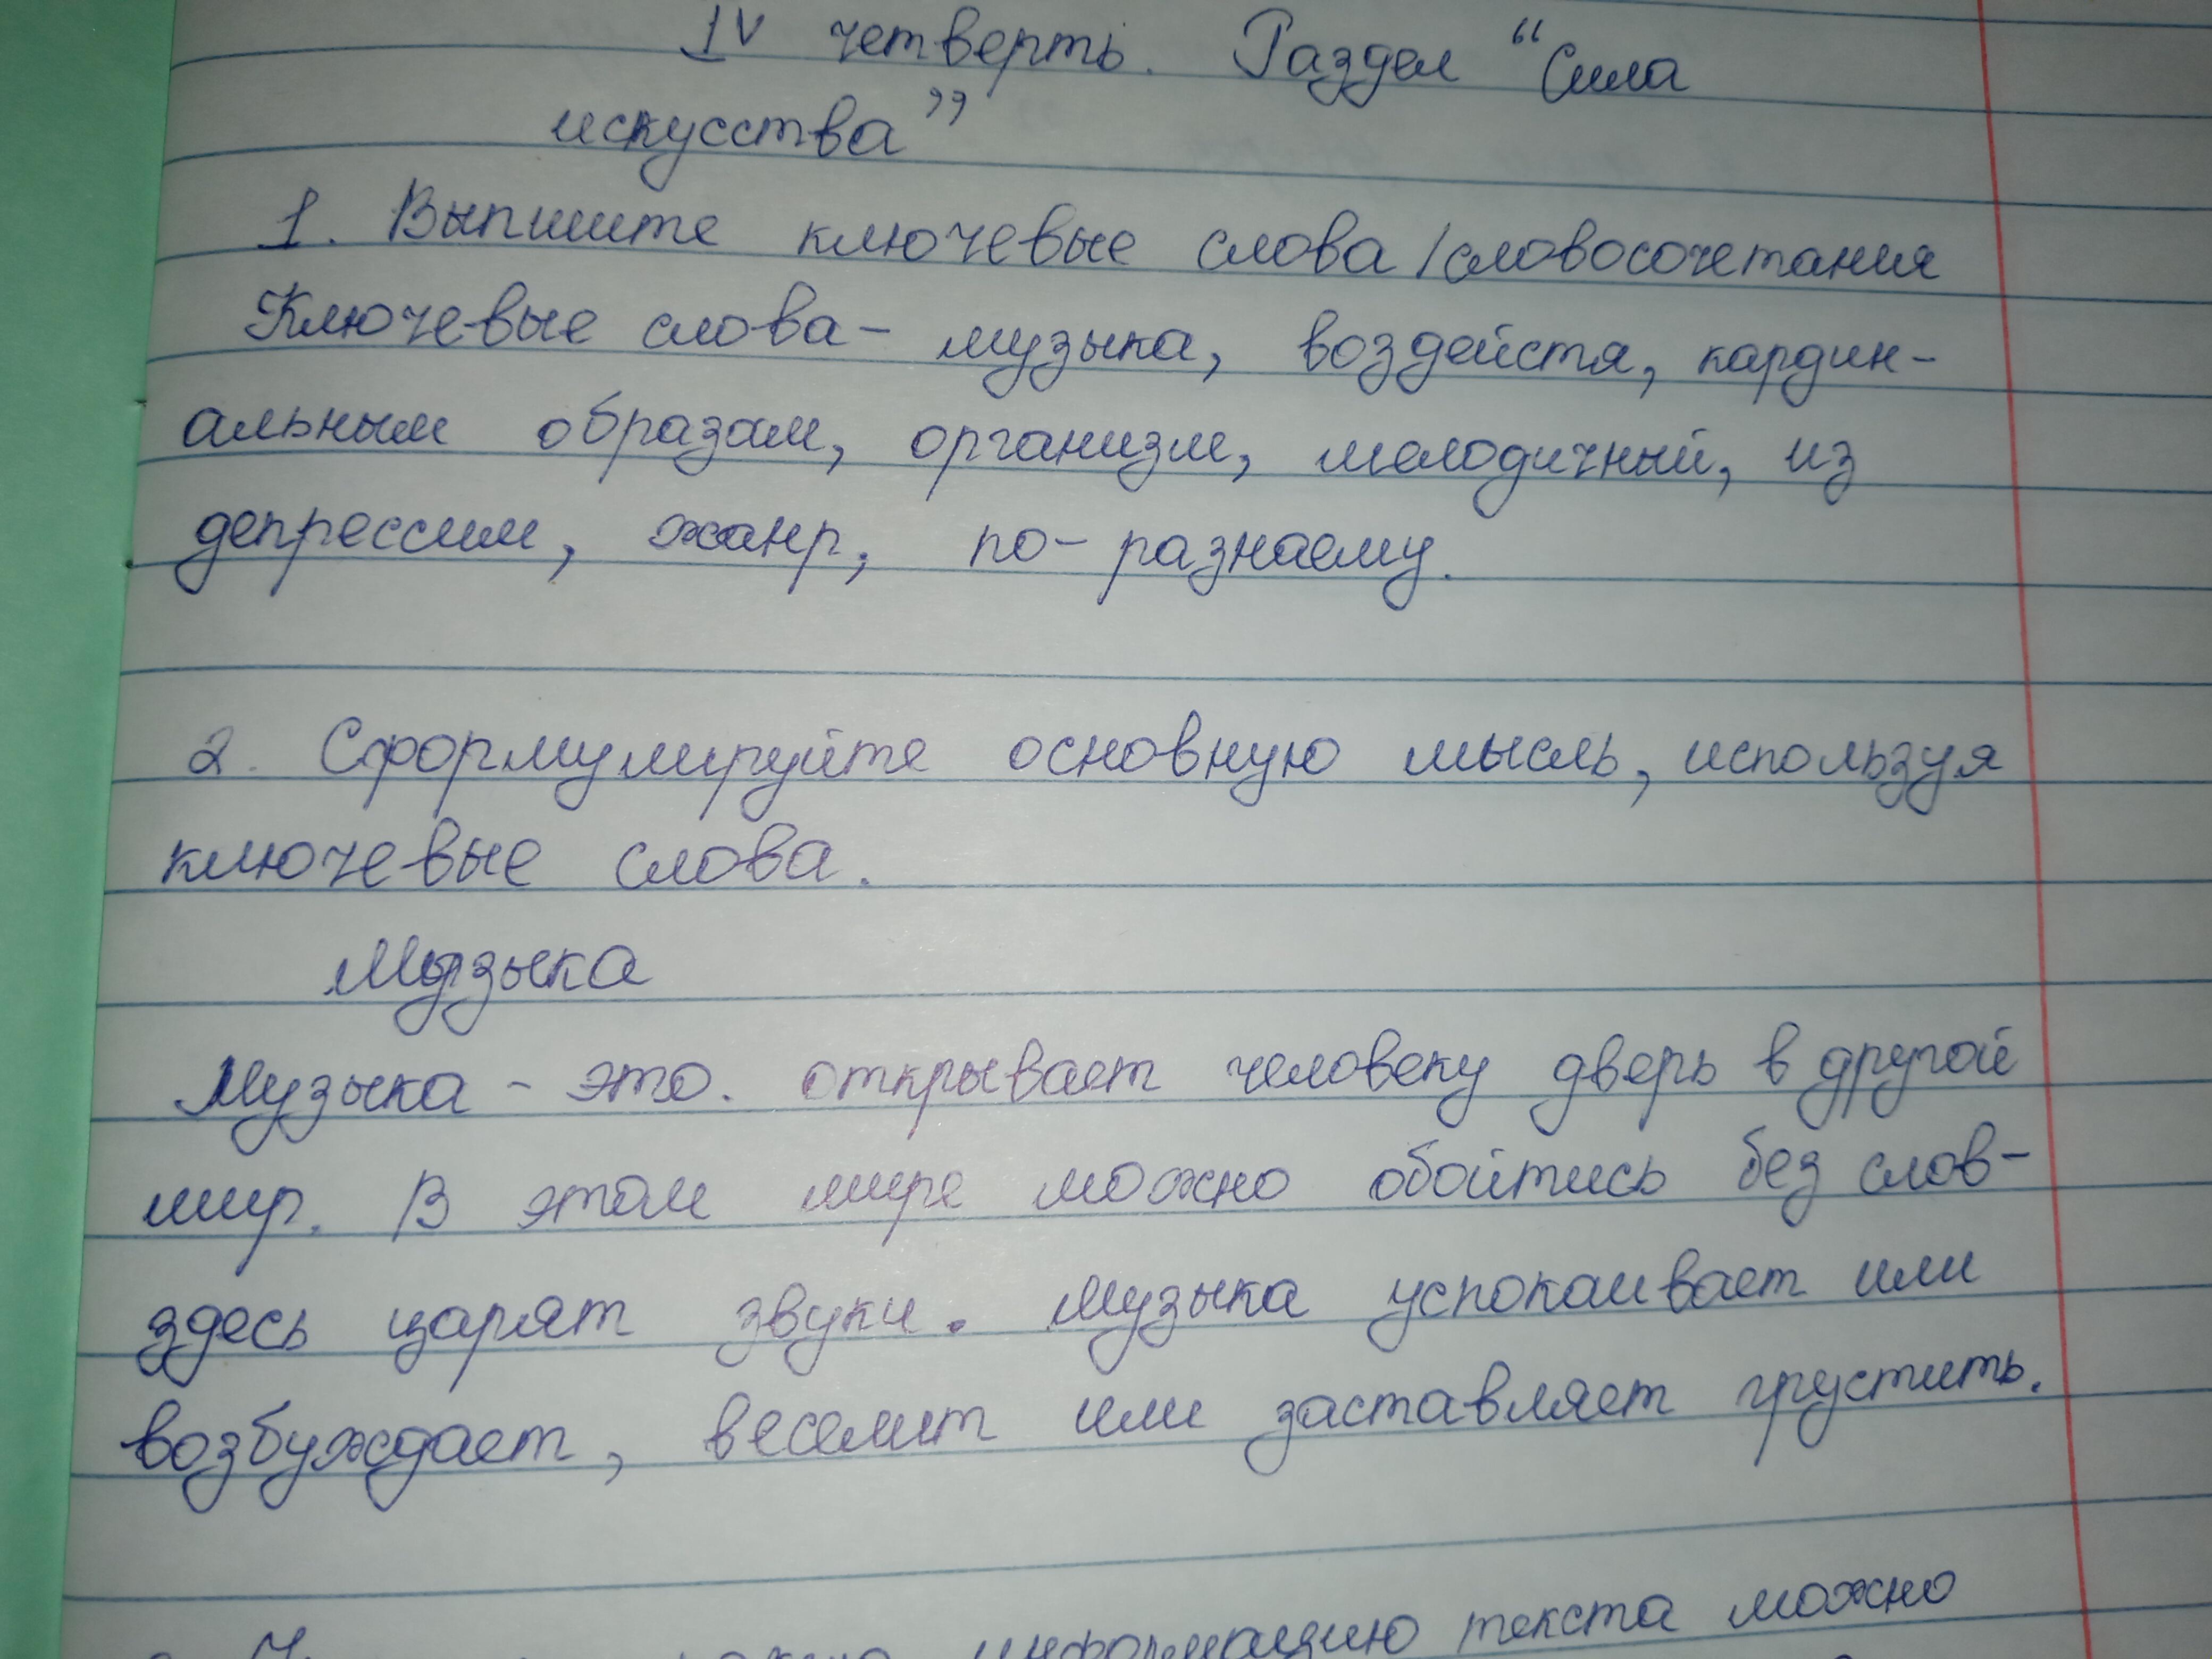 IV четверть. Раздел “Сила
искусства”
1. Выпишите ключевые слова/словосочетания
Ключевые слова- музыка, воздейстя, кардин-
альным образом, организм, мелодичный, из
депрессии, жанр, по-разнаему.
2. Сформулируйте основную мысль, используя
ключевые слова.
Музыка
Музыка - это. открывает человеку дверь в другой
мир. В этом мире можно обойтись без слов-
здесь царят звуки. Музыка успокаивает или
возбуждает, веселит или заставляет грустить.
информацию текста можно